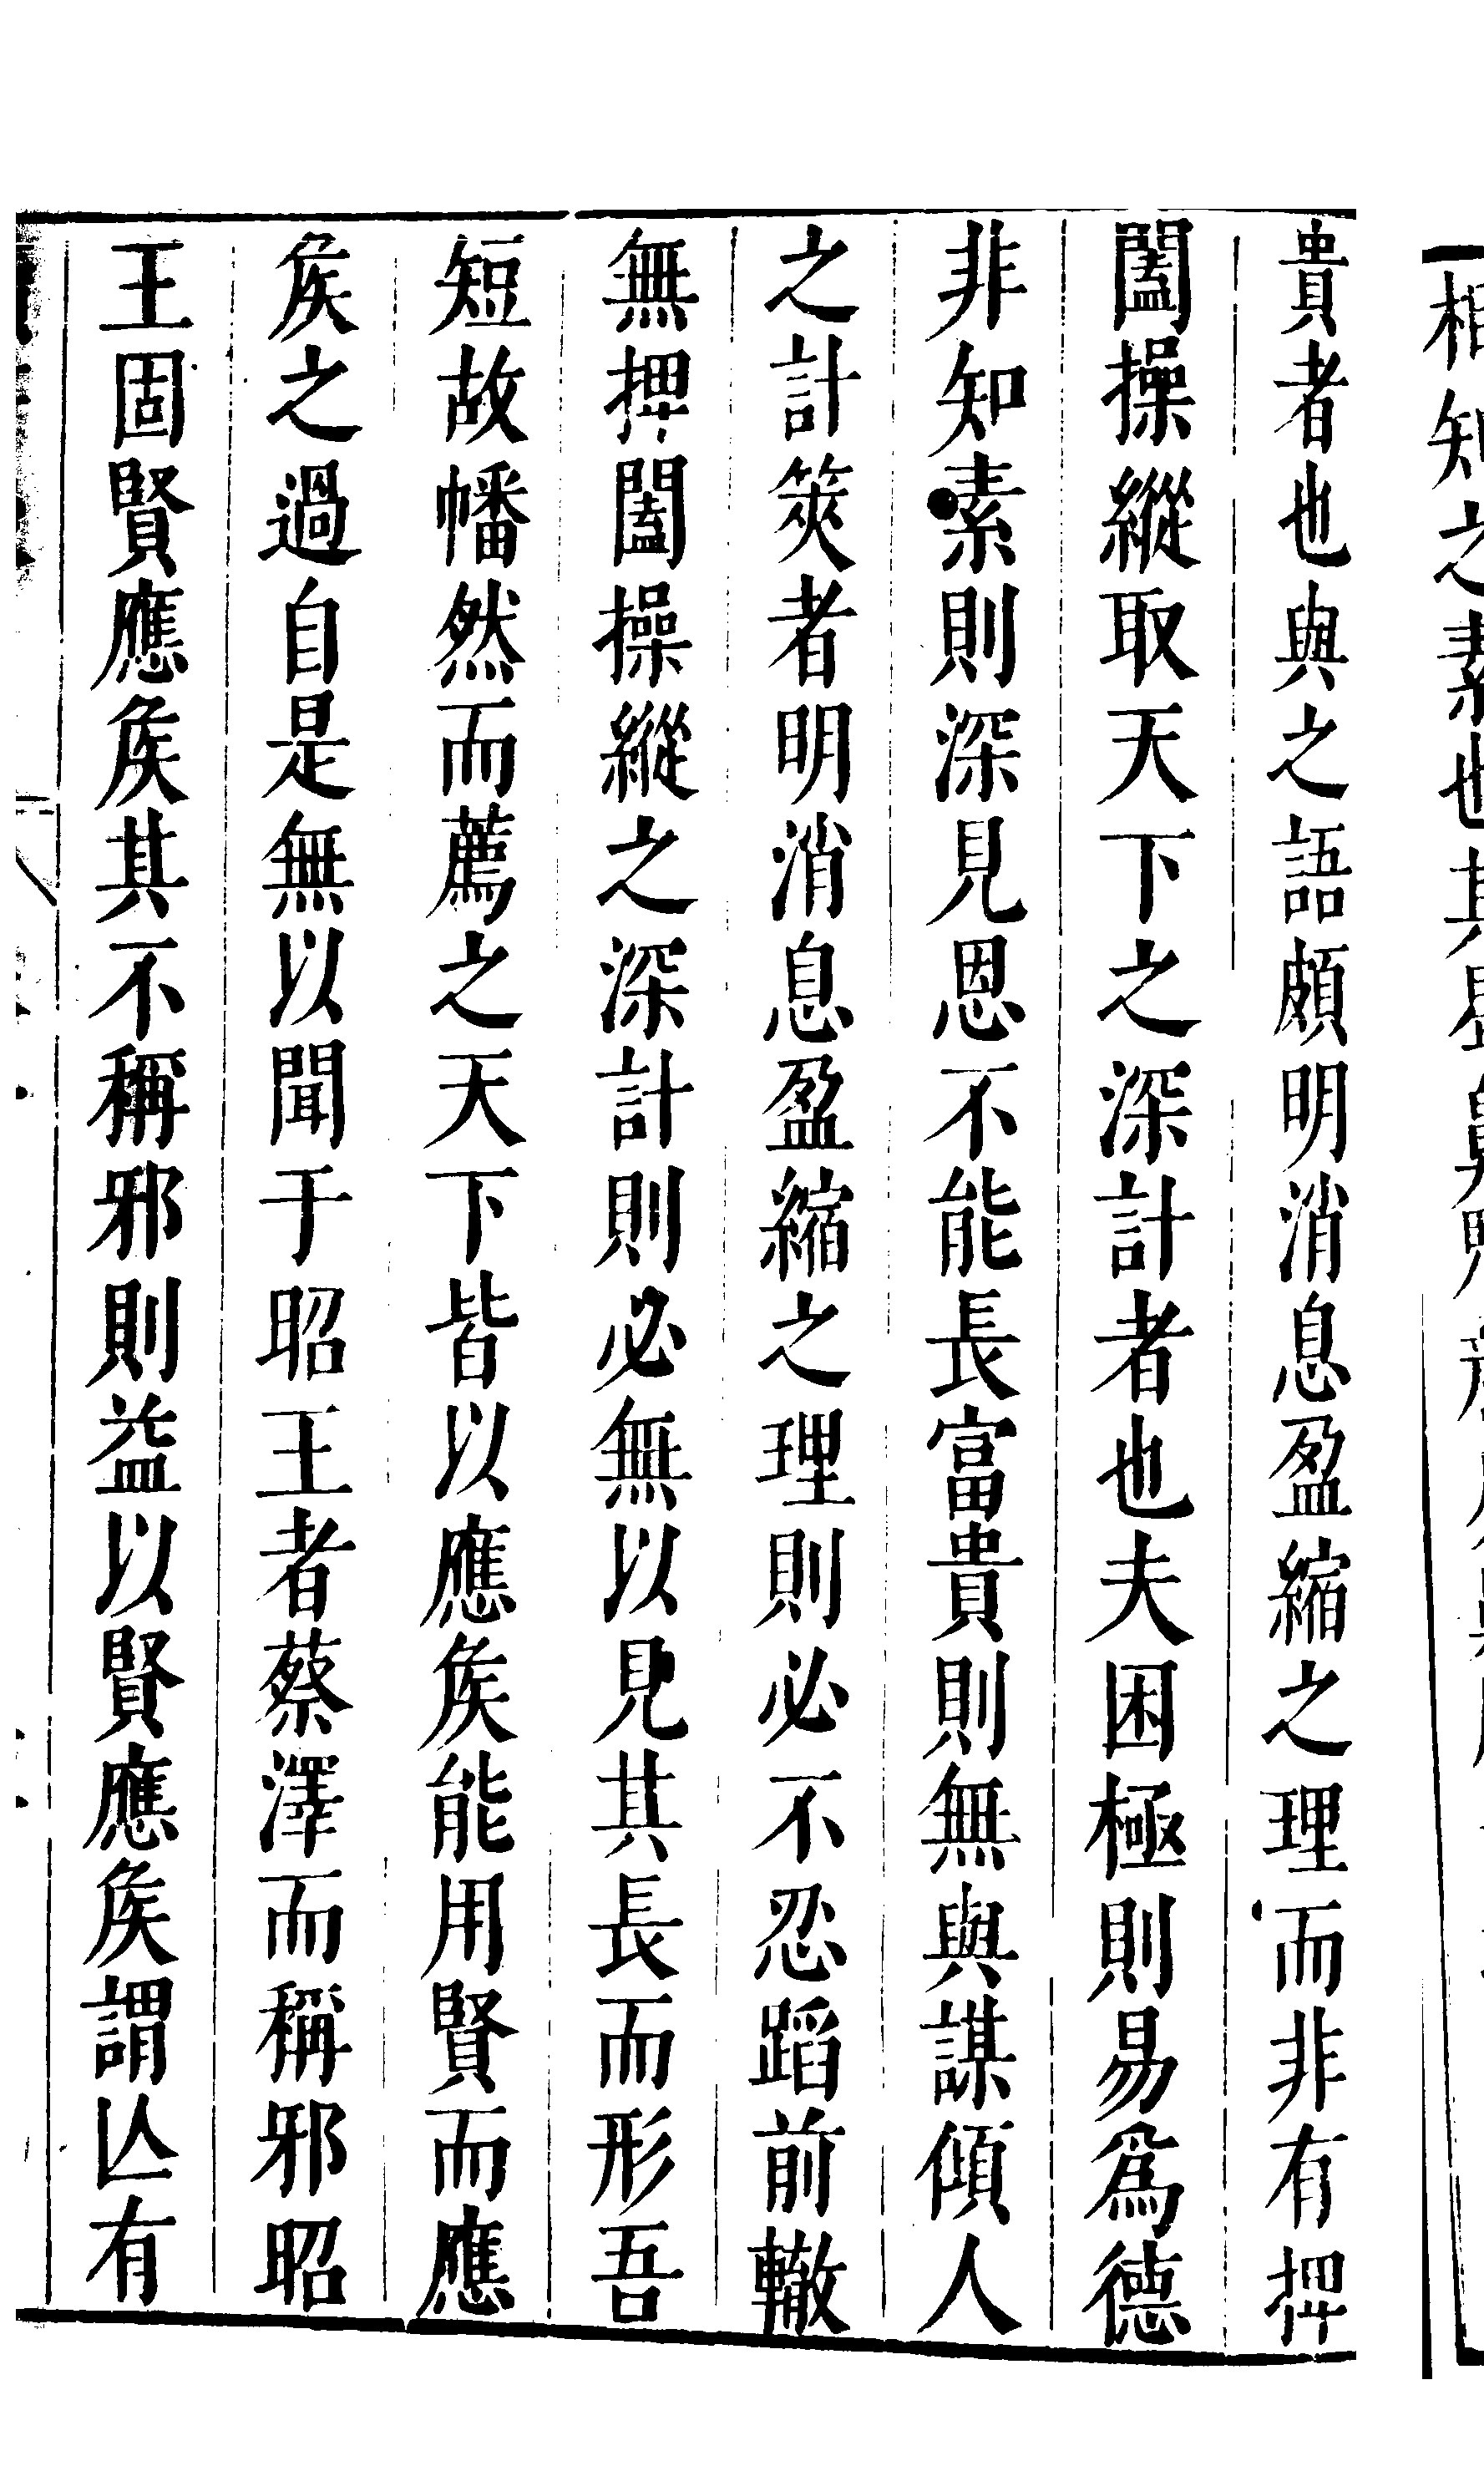 相知之素也其
貴者也與之語頗明消息盈縮之理而非有捭
闔操縱取天下之深計者也夫困極則易為德
非知素則深見恩不能長富貴則無與謀傾人
之計筴者明消息盈縮之理則必不忍蹈前轍
無捭闔操縱之深計則必無以見其長而形吾
短故幡然而薦之天下皆以應矦能用賢而應
矦之過自是無以聞于昭王者蔡澤而稱邪昭
王固賢應矦其不稱邪則益以賢應矦謂亾有